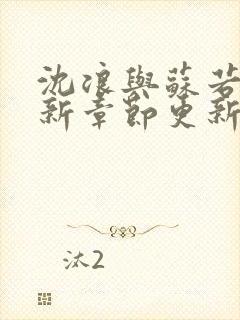 沈浪與蘇若
新章節更新
汰2